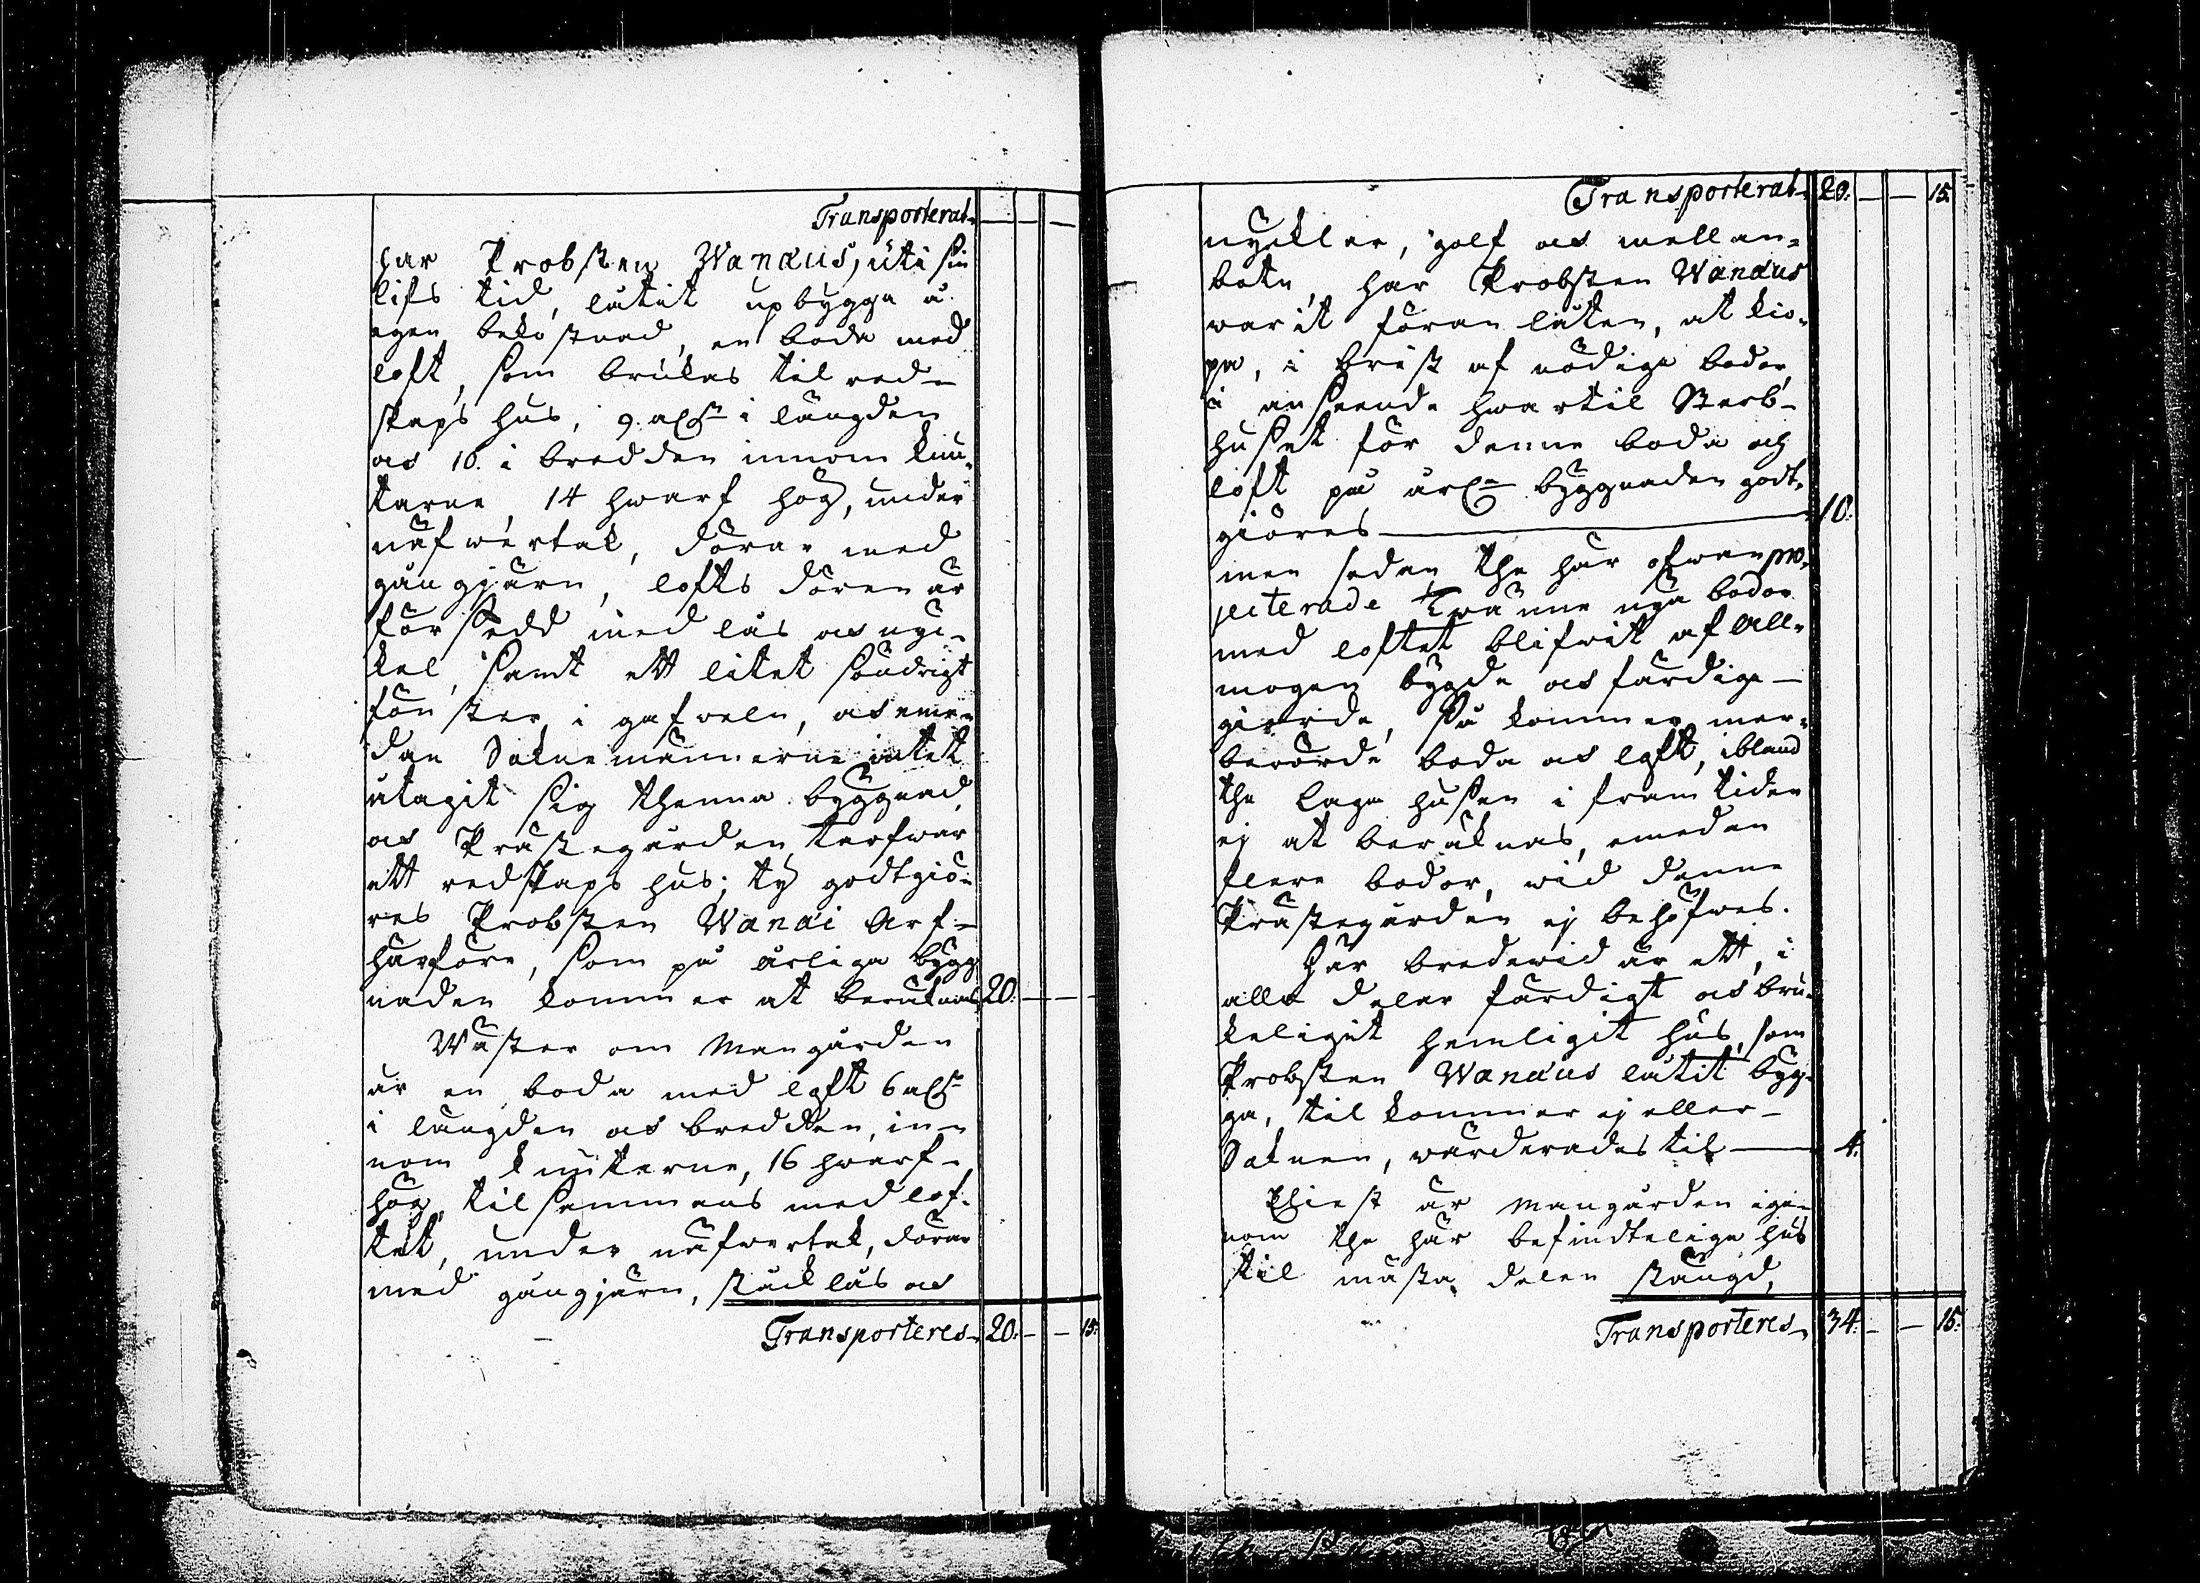 Transporterat — — —
har Probsten Wanæus, uti sin
lifs tid, låtit upbygga å
egen bekostnad, en boda med
loft, som brukas til red-
skaps hus, 9. aln:r i längden
och 10. i bredden innom knu-
tarne, 14 hwarf hög, under
näfwertak, dörar med
gångjärn, lofts dören är
försedd med lås och nyc-
kel, samt ett litet söndrigt
fönster i gafweln, och eme-
dan Soknemännerne intet
åtagit sig thenna byggnad,
och Prästegården tarfwar
ett redskaps hus; ty godtgiö-
res Probsten Wanæi Arf-
härföre, som på årliga bygg
naden kommer at beräknas 20: — —
Wäster om Mangården
är en boda med loft 6 aln:r
i längden och bredden, in-
nom knutarne, 16 hwarf-
hög, tilsammans med lof-
tet, under näfwertak, dörar
med gångjärn, stäcklås och
Transporteres 20: — — 15:
Transporterat 20: — — 15:
nycklar, golf och mellan-
botn, har Probsten Wanæus
warit föranlåten, at kiö-
pa, i brist af nödige bodor,
i anseende hwartil Sterb-
huset för denne boda och
loft på årl:a byggnaden godt-
giöres 10:
men sedan the här ofwan pro-
jecterade Twänne nya bodor
med loftet blifwit af All-
mogen bygde och färdige-
giorde, så kommer mer-
berörde boda och loft, ibland
the Laga husen i framtiden
ej at beräknas, emedan
flere bodor, wid denne
Prästegården ej behöfwes.
Här bredewid är ett, i
alla delar färdigt och bru-
keligit hemligit hus, som
Probsten Wanæus låtit byg-
ga, tilkommer ej eller-
Soknen, wärderades til 4:
är Mangården ige-
nom the här befindtelige hus
til mästa delen stängd,
Transporteres 34: — — 15: